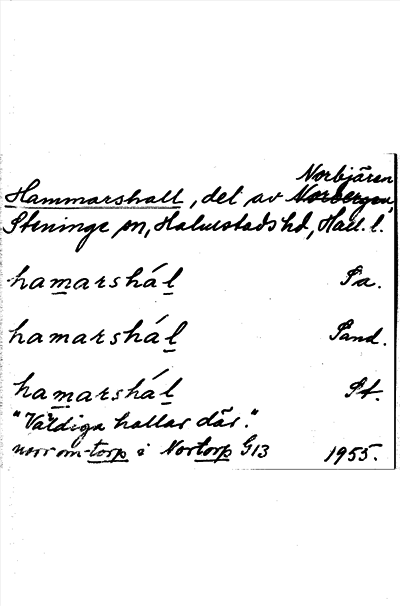 Norbjären
Hammarshall, del av Norbergen,
Steninge sn, Halmstads hd, Hall. l.
hamarshál Sa.
hamarshál Sand.
hamarshál St.
"Väldiga hallar där."
norr om torp i Nortorp G13 1955.